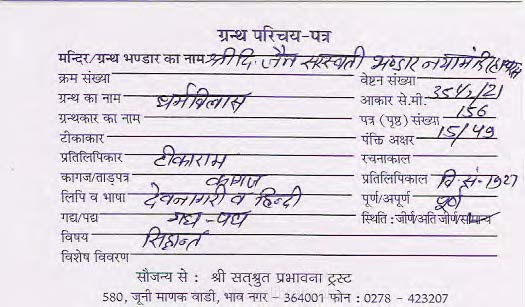 ग्रन्थ परिचय-पत्र
मन्दिर/ग्रन्थ भण्डार का नाम श्री दि. जैन सरस्वती भण्डार नया मंदिर
क्रम संख्या वेष्टन संख्या
ग्रन्थ का नाम धर्मविलास आकार से.मी.
ग्रन्थकार का नाम पत्र (पृष्ठ) संख्या 156
टीकाकार पंक्ति अक्षर 15/49
प्रतिलिपिकार टीकाराम रचनाकाल
कागज/ताड़पत्र कागज प्रतिलिपिकाल वि सं-1927
लिपि व भाषा देवनागरी व हिन्दी पूर्ण/अपूर्ण पूर्ण
गद्य/पद्य गद्य-पद्य स्थिति : जीर्ण/अति जीर्ण/सामान्य
विषय सिद्धान्त
विशेष विवरण
सौजन्य से : श्री सत्श्रुत प्रभावना ट्रस्ट
580, जूनी माणक वाडी, भाव नगर - 364001 फोन : 0278 - 423207